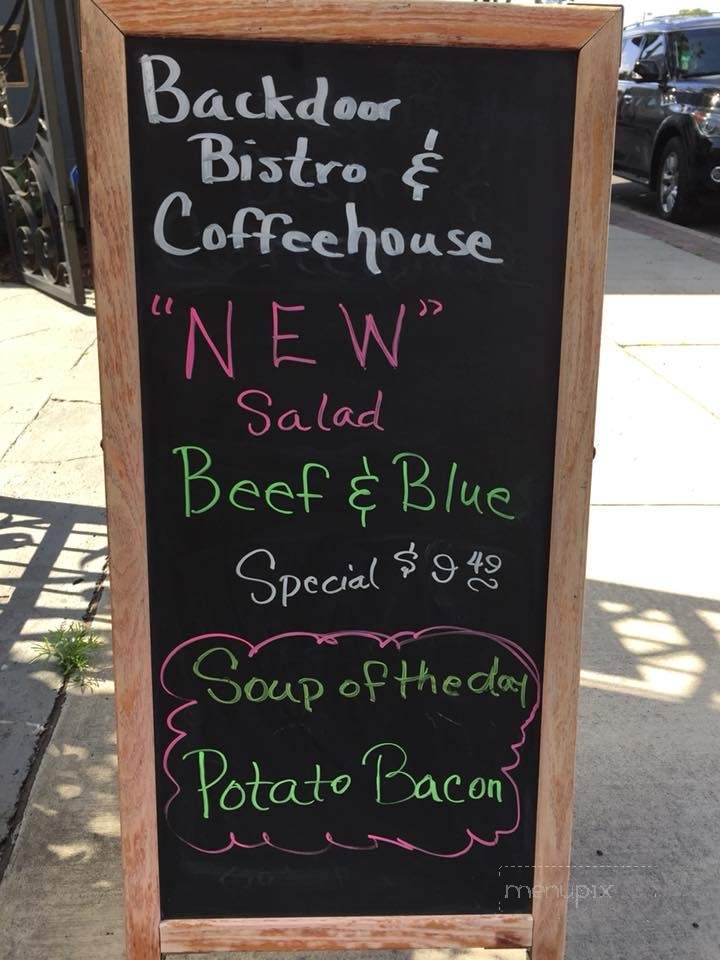 Backdoor
Bistro &
Coffeehouse
"NEW"
Salad
Beef & Blue
Special $9.49
Soup of the day
Potato Bacon
menupix